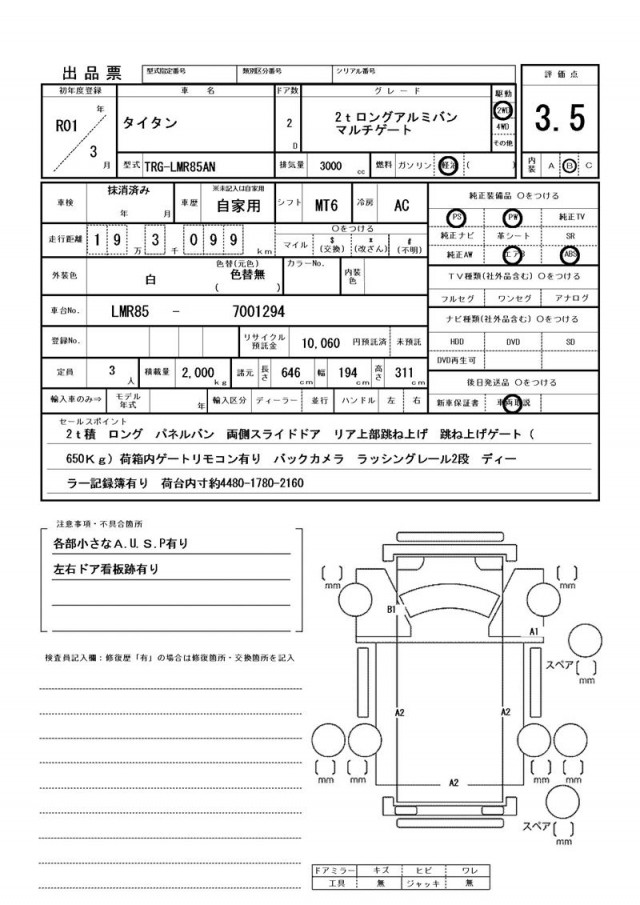 出品票 型式指定番号 類別区分番号 シリアル番号
初年度登録 車名 ドア数 グレード 駆動 評価点
R01 年 3 月 タイタン 2 D 2tロングアルミバン 2WD 3.5
マルチゲート 4WD
その他
型式 TRG-LMR85AN 排気量 3000 cc 燃料 ガソリン 軽油 ( ) 内装 A B C
車検 抹消済み 年 月 車歴 ※未記入は自家用 自家用 シフト MT6 冷房 AC 純正装備品 ○をつける
PS PW 純正TV
走行距離 19万3千099km ○をつける マイル $(交換) *(改ざん) #(不明) 純正ナビ 革シート SR
純正AW エアB ABS
外装色 白 色替(元色) 色替無 ( ) カラーNo. 内装色 TV種類(社外品含む) ○をつける
フルセグ ワンセグ アナログ
車台No. LMR85 - 7001294 ナビ種類(社外品含む) ○をつける
登録No. リサイクル預託金 10,060 円預託済 未預託 HDD DVD SD
DVD再生可
定員 3 人 積載量 2,000 kg 諸元 長さ 646 cm 幅 194 cm 高さ 311 cm 後日発送品 ○をつける
輸入車のみ⇒ モデル年式 年 輸入区分 ディーラー 並行 ハンドル 左 右 新車保証書 車両取説
セールスポイント
2t積 ロング パネルバン 両側スライドドア リア上部跳ね上げ 跳ね上げゲート(
650Kg)荷箱内ゲートリモコン有り バックカメラ ラッシングレール2段 ディー
ラー記録簿有り 荷台内寸約4480-1780-2160
注意事項・不具合箇所
各部小さなA.U.S.P有り
左右ドア看板跡有り
検査員記入欄:修復歴「有」の場合は修復箇所・交換箇所を記入
[ ] mm [ ] mm
B1 A1
スペア [ ] mm
A2 A2
[ ] mm [ ] mm [ ] mm [ ] mm
A2
スペア [ ] mm
ドアミラー キズ ヒビ ワレ
工具 無 ジャッキ 無